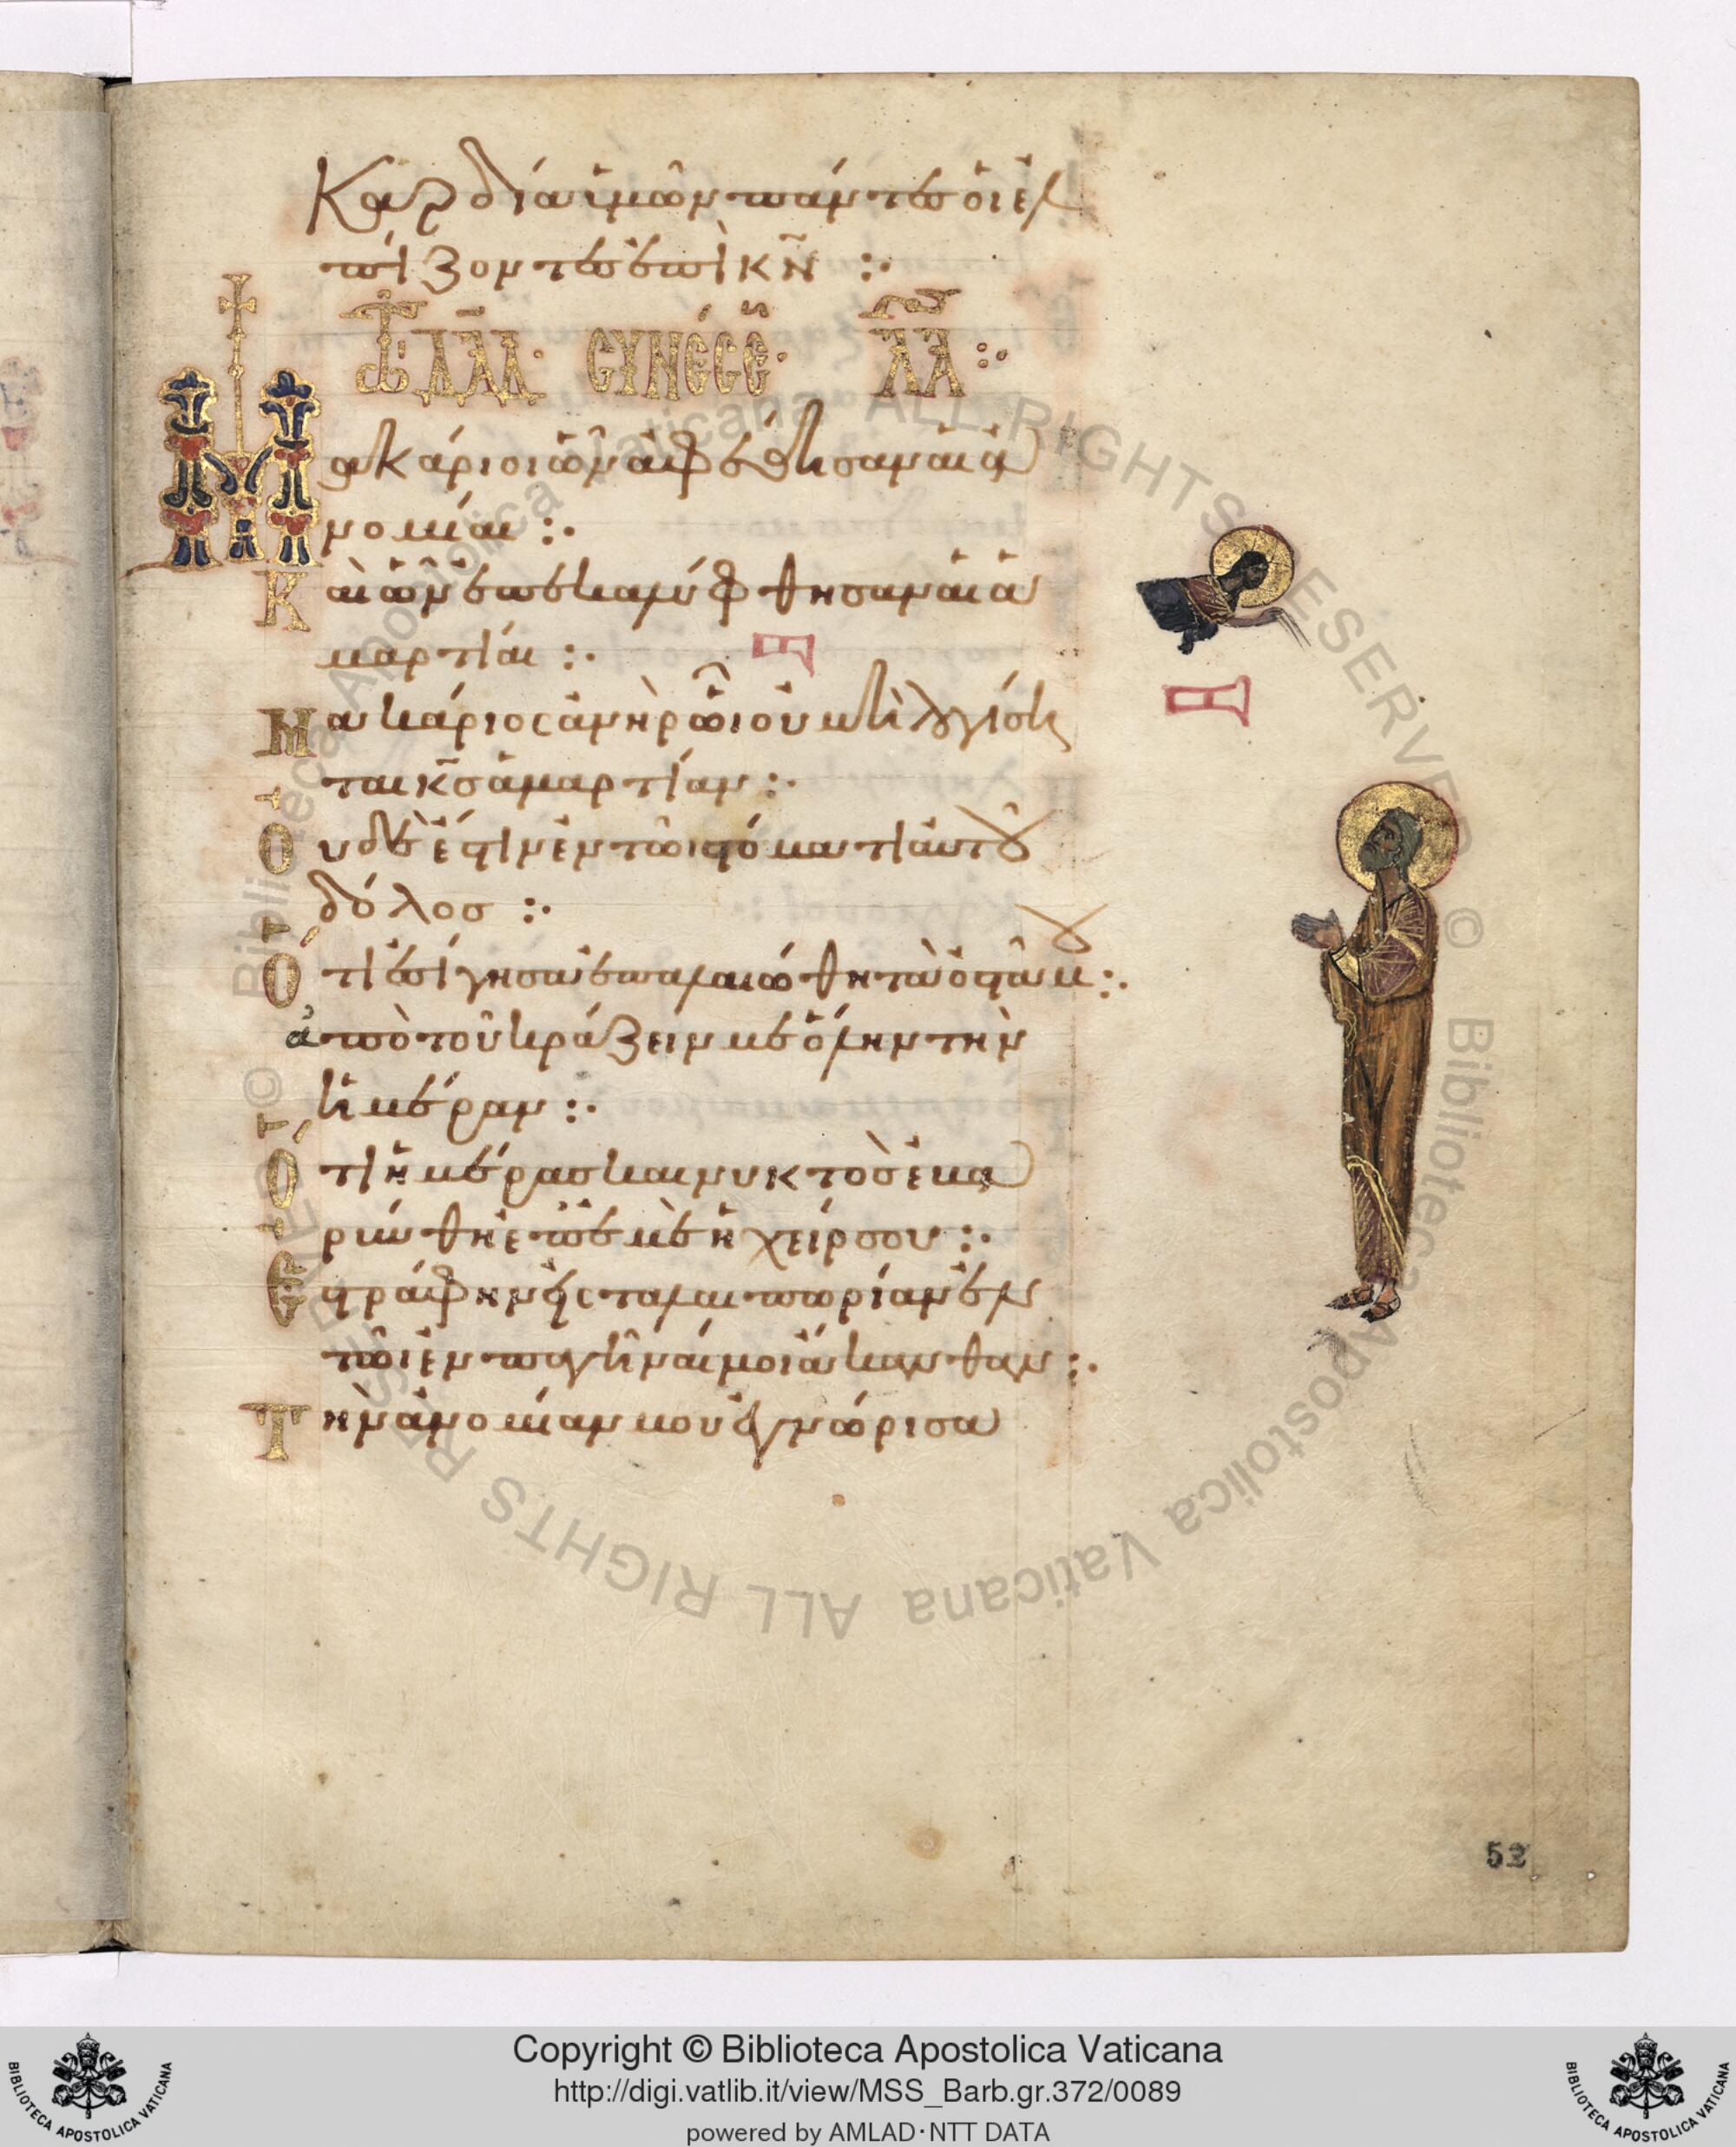 Καρδία ὑμῶν πάντες οἱ ἐλ
πίζοντες ἐπὶ κ̅ν̅ :·
Ψ τ δα̅δ· CΥΝΕCΕ· Λ̅Α̅ :·
Μακάριοι ὧν ἀφέθησαν αἱ ἀ
νομίαι :·
Καὶ ὧν ἐπεκαλύφθησαν αἱ ἁ
μαρτίαι :·
Μακάριος ἀνὴρ ὧι οὐ μὴ λογίση
ται κ̅ς̅ ἁμαρτίαν :·
Οὐδὲ ἔστιν ἐν τῶι στόματι αὐτοῦ
δόλος :·
Ὅτι ἐσίγησα ἐπαλαιώθη τὰ ὀστᾶ μου :·
ἀπὸ τοῦ κράζειν με ὅλην τὴν
ἡμέραν :·
Ὅτι ἡμέρας καὶ νυκτὸς ἐβα
ρύνθη ἐπ' ἐμὲ ἡ χείρ σου :·
Ἐστράφην εἰς ταλαιπωρίαν ἐν
τῶι ἐμπαγῆναί μοι ἄκανθαν :·
Τὴν ἀνομίαν μου ἐγνώρισα
52
© Biblioteca Apostolica Vaticana ALL RIGHTS RESERVED © Biblioteca Apostolica Vaticana ALL RIGHTS RESERVED
Copyright © Biblioteca Apostolica Vaticana
http://digi.vatlib.it/view/MSS_Barb.gr.372/0089
powered by AMLAD·NTT DATA
BIBLIOTECA APOSTOLICA VATICANA
BIBLIOTECA APOSTOLICA VATICANA